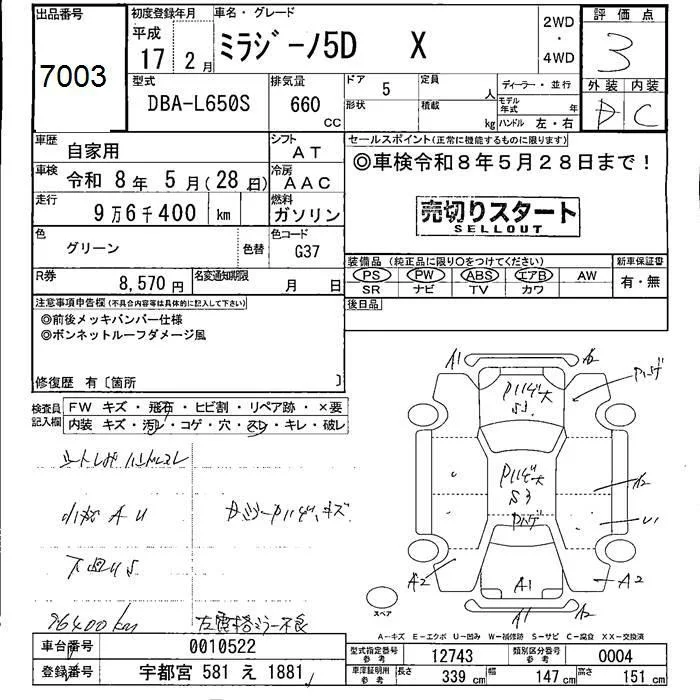 出品番号
7003
初度登録年月
平成
17 2月
車名・グレード
ミラジーノ5D X
2WD
・
4WD
評価点
3
外装 内装
D C
型式
DBA-L650S
排気量
660
CC
ドア
5
定員
人
形状
積載
kg
ディーラー・並行
モデル年式
年
ハンドル 左・右
車歴
自家用
シフト
AT
車検
令和 8年 5月(28日)
冷房
AAC
走行
9万6千400 km
燃料
ガソリン
色
グリーン
色替
色コード
G37
R券
8,570円
名変通知期限
月 日
セールスポイント(正常に機能するものに限ります)
◎車検令和8年5月28日まで!
売切りスタート
SELLOUT
装備品(純正品に限り○をつけてください)
PS PW ABS エアB AW
SR ナビ TV カワ
新車保証書
有・無
後日品
注意事項申告欄(不具合内容等は具体的に記入して下さい)
◎前後メッキバンパー仕様
◎ボンネットルーフダメージ風
修復歴 有〔箇所 〕
検査員
記入欄
FW キズ・飛石・ヒビ割・リペア跡・×要
内装 キズ・汚れ・コゲ・穴・スレ・キレ・破レ
小キズ A U
下回りS
96400km
A1
A2
A1
A2
A2
A1
A1
A2
U1
S3
S3
スペア
A-キズ E-エクボ U-凹み W-補修跡 S-サビ C-腐食 XX-交換済
車台番号
0010522
登録番号
宇都宮 581 え 1881
型式指定番号
参考
12743
類別区分番号
参考
0004
車庫証明用
参考
長さ
339 cm
幅
147 cm
高さ
151 cm